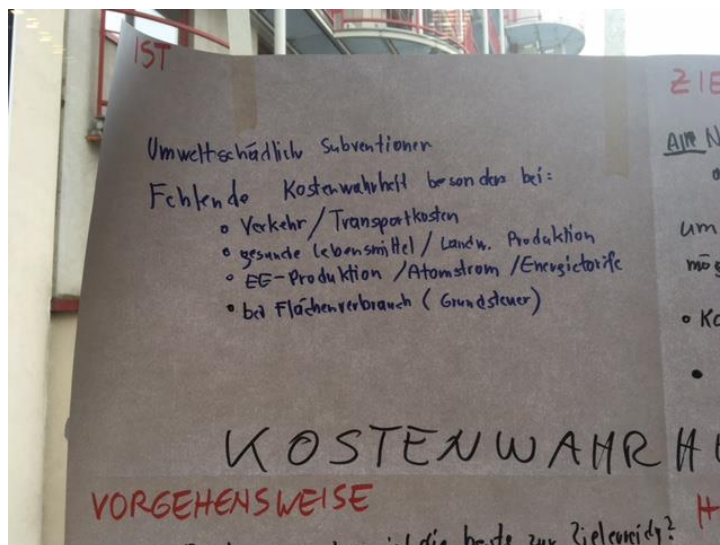 IST
Umweltschädlich Subventionen
Fehlende Kostenwahrheit besonders bei:
• Verkehr / Transportkosten
• gesunde Lebensmittel / Landw. Produktion
• EE-Produktion / Atomstrom / Energietarife
• bei Flächenverbrauch (Grundsteuer)
ZIE
Alle N
um
mög
• Ko
•
KOSTENWAHRH
VORGEHENSWEISE
H
die beste zur Zielerreichg?